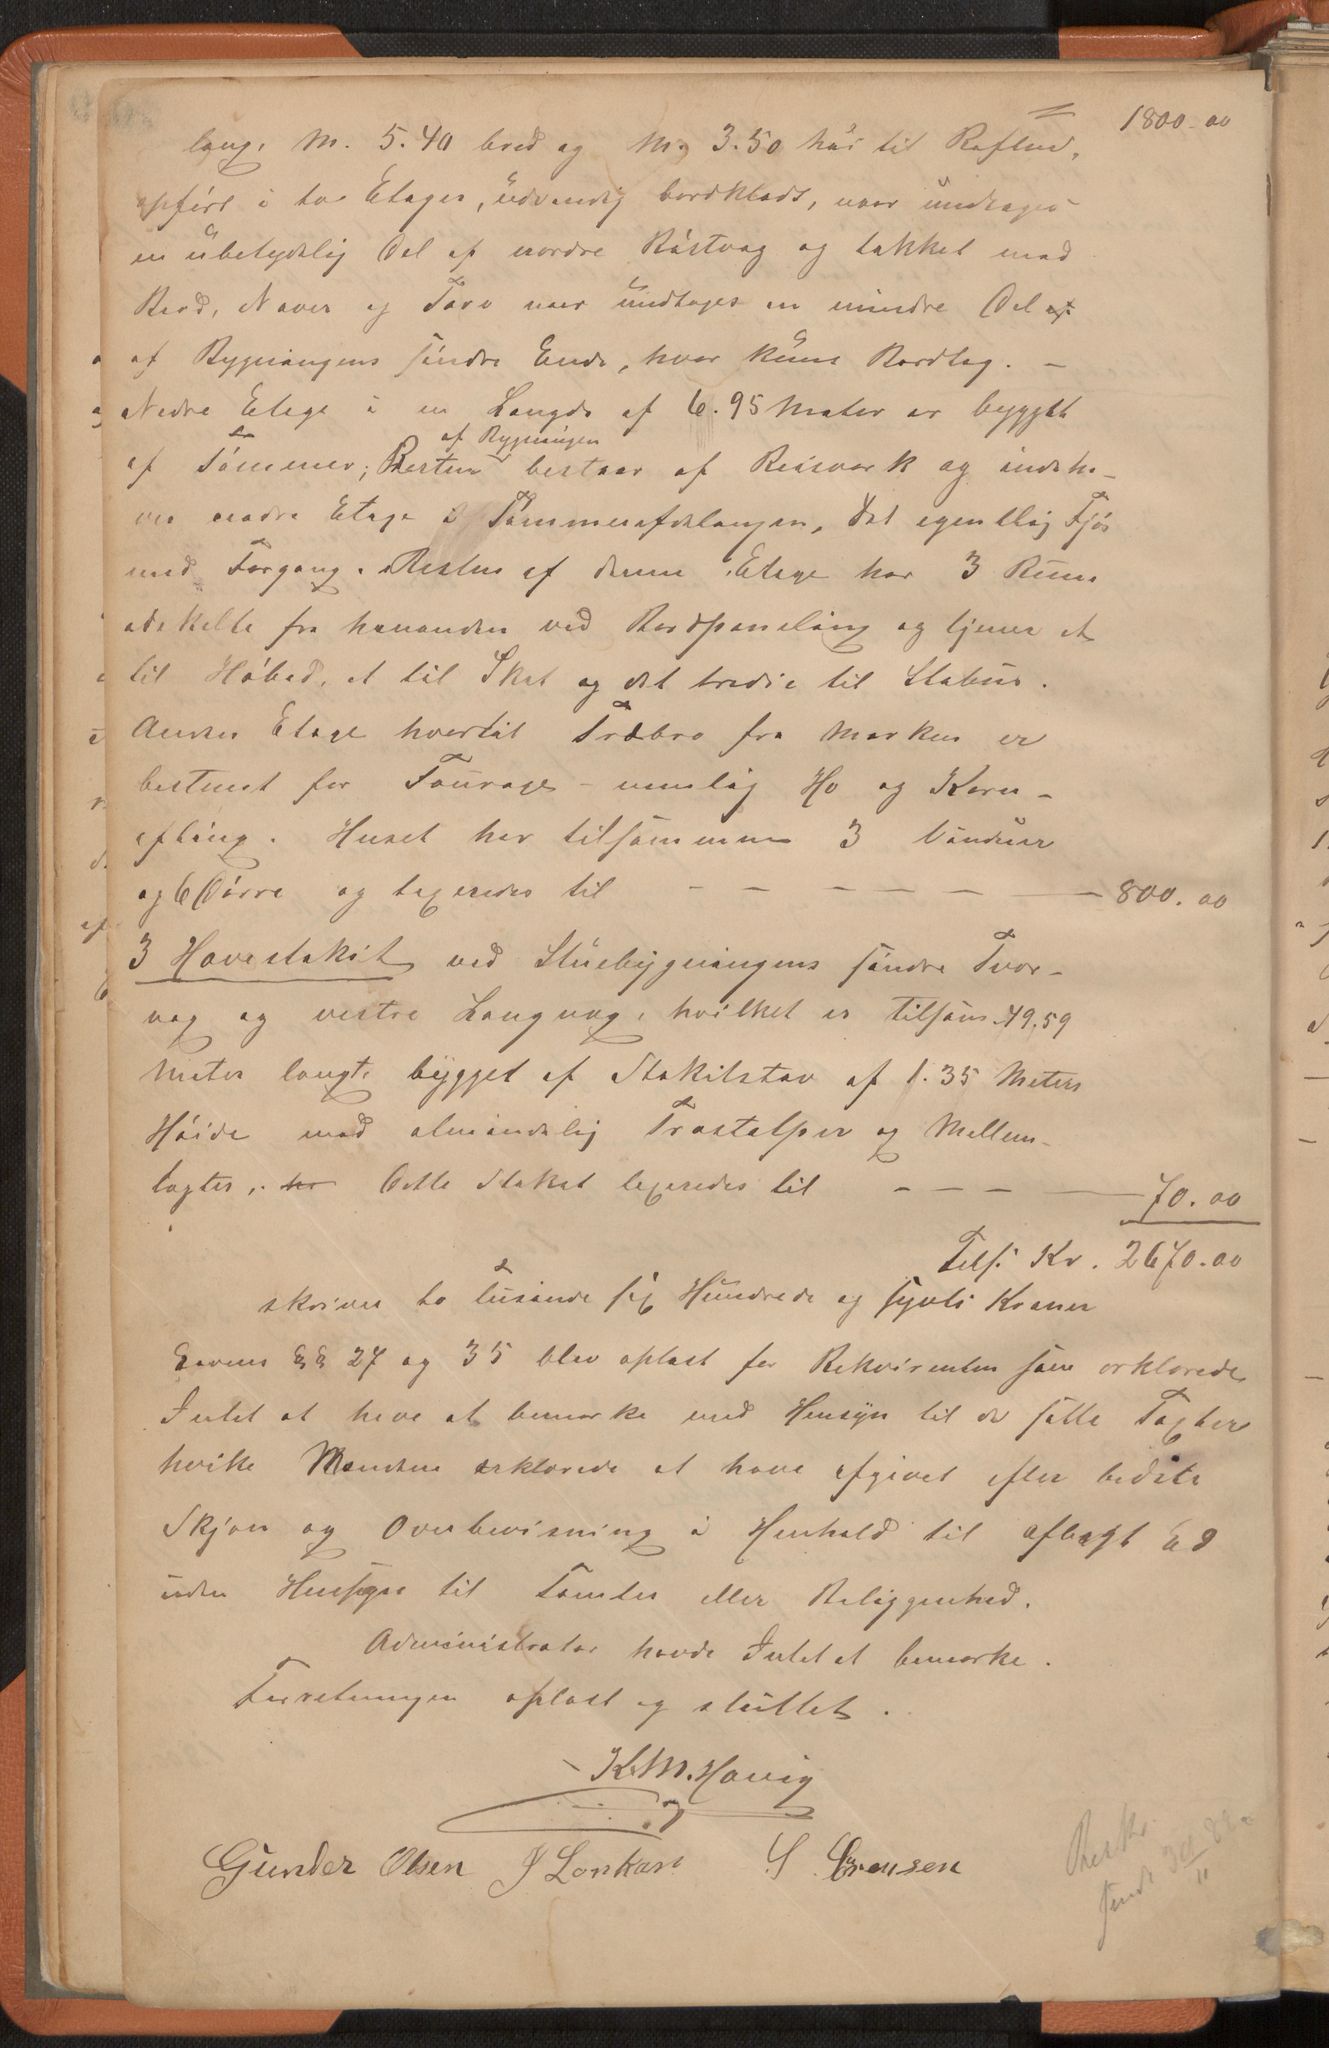 1800.00
lang, M. 5.40 bred og M. 3.50 høi til Raftet,
opført i to Etager, udvendig bordklædt, naar undtages
en ubetydelig Del af nordre Røstvæg og tækket med
Bord, Næver og Torv naar undtages en mindre Del
af Bygningens søndre Ende, hvor kun Bordtag. —
Nedre Etage i en Længde af 6.95 Meter er bygget
af Tømmer; Resten af Bygningen bestaar af Reisværk og indeha-
ver nedre Etage i Tømmerafdelingen, det egentlig Fjøs
med Forgang. Resten af denne Etage har 3 Rum
adskilte fra hverandre ved Bordpaneling og tjener et
til Høbod, et til Skot og det tredie til Stabur.
Anden Etage hvortil Træbro fra Marken er
bestemt for Fourage nemlig Hø og Korn-
afling. Huset har tilsammen 3 Vinduer
og 6 Dørre og taxeredes til — — — — — — 800.00
3 Havestakit ved Stuebygningens søndre Tvær-
væg og vestre Langvæg, hvilket er tilsam. 49.59
Meter langt, bygget af Stakitstav af 1.35 Meters
Høide med almindelig Træstolper og Mellem-
lægter, Dette Stakit taxeredes til — — — — 70.00
Tils. Kr. 2670.00
skriver to tusinde sex Hundrede og sytti Kroner
Lovens §§ 27 og 35 blev oplæst for Rekvirenten som erklærede
Intet at have at bemærke med Hensyn til de satte Taxter
hvilke Mændene erklærede at have afgivet efter bedste
Skjøn og Overbevisning i Henhold til aflagt Ed
uden Hensyn til Tomter eller Beliggenhed.
Administrator havde Intet at bemærke.
Forretningen oplæst og sluttet.
K. M. Havig
Gunder Olsen J Lonkan S Sørensen
Besk.
sendt 30/11 82